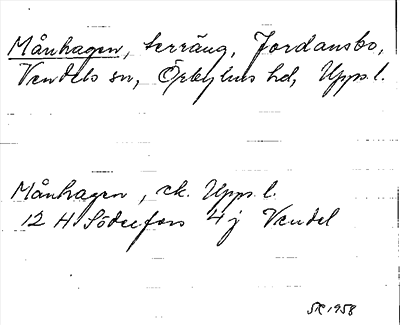 Månhagen, terräng, Jordansbo,
Vendels sn, Örbyhus hd, Upps. l.
Månhagen, ek. Upps. l.
12 H Söderfors 4 j Vendel
SR 1958